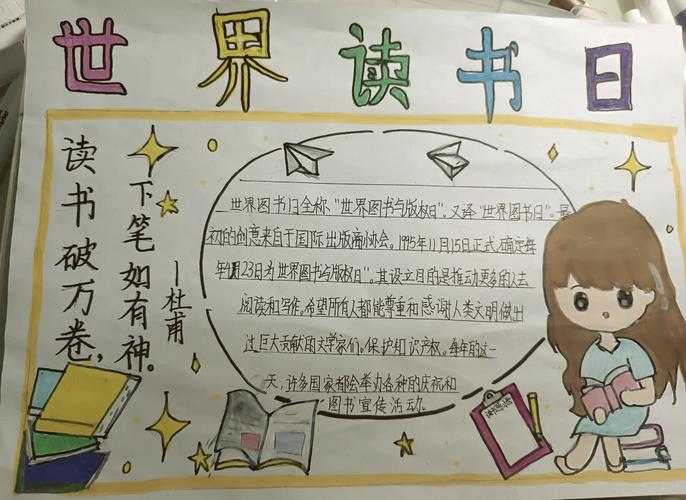 世界读书日
读书破万卷，
下笔如有神。
—杜甫
世界图书日全称，"世界图书与版权日"，又译"世界图书日"。最
初的创意来自于国际出版商协会。1995年11月15日正式确定每
年4月23日为"世界图书与版权日"。其设立目的是推动更多的人去
阅读和写作。希望所有人都能尊重和感谢人类文明做出
过巨大贡献的文学家们。保护知识产权。每年的这一
天，许多国家都会举办各种的庆祝和
图书宣传活动。